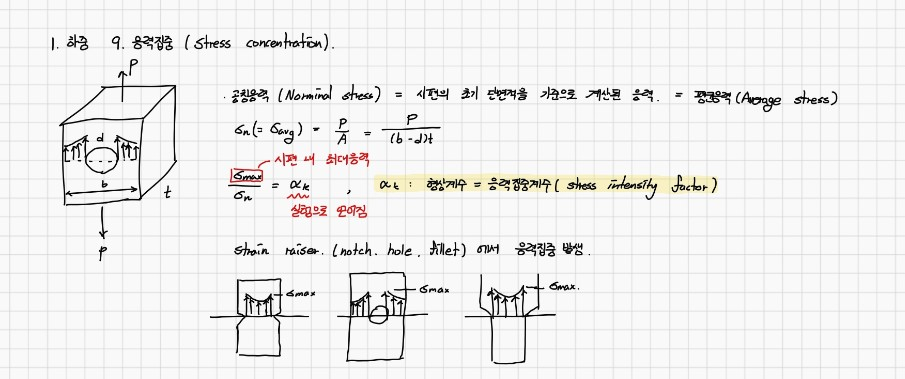 1. 하중 9. 응력집중 (Stress concentration).
P
· 공칭응력 (Norminal stress) = 시편의 초기 단면적을 기준으로 계산된 응력. = 평균응력 (Average stress)
σn (= σavg) = P/A = P/(b-d)t
d
b
t
P
시편 내 최대응력
σmax/σn = αk , αk : 형상계수 = 응력집중계수 (stress intensity factor)
실험으로 얻어짐
Strain raiser. (notch, hole, fillet) 에서 응력집중 발생.
σmax
σmax
σmax.